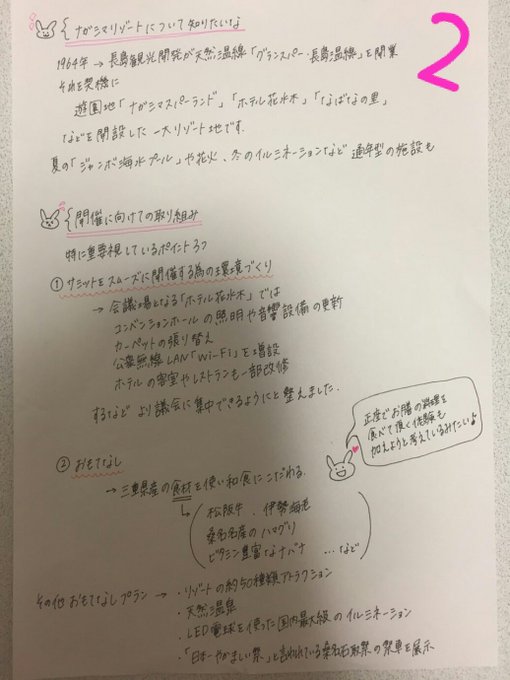 2
ナガシマリゾートについて知りたいな
1964年 → 長島観光開発が天然温線「グランスパー・長島温線」を開業
それを契機に
遊園地「ナガシマスパーランド」「ホテル花水木」「なばなの里」
などを開設した一大リゾート地です.
夏の「ジャンボ海水プール」や花火、冬のイルミネーションなど 通年型の施設も
開催に向けての取り組み
特に重要視しているポイント2つ
① サミットをスムーズに開催する為の環境づくり
→ 会議場となる「ホテル花水木」では
コンベンションホールの照明や音響設備の更新
カーペットの張り替え
公衆無線LAN「Wi-Fi」を増設
ホテルの客室やレストランも一部改修
するなど より議会に集中できるようにと整えました.
正座でお膳の料理を
食べて頂く体験も
加えようと考えているみたいよ♪
② おもてなし
→ 三重県産の食材を使い和食にこだわる.
↳ 松阪牛、伊勢海老
桑名名産のハマグリ
ビタミン豊富なナバナ …など
その他おもてなしプラン → ・リゾートの約50種類アトラクション
・天然温泉
・LED電球を使った国内最大級のイルミネーション
・「日本一やかましい祭」と言われている桑名石取祭の祭車を展示